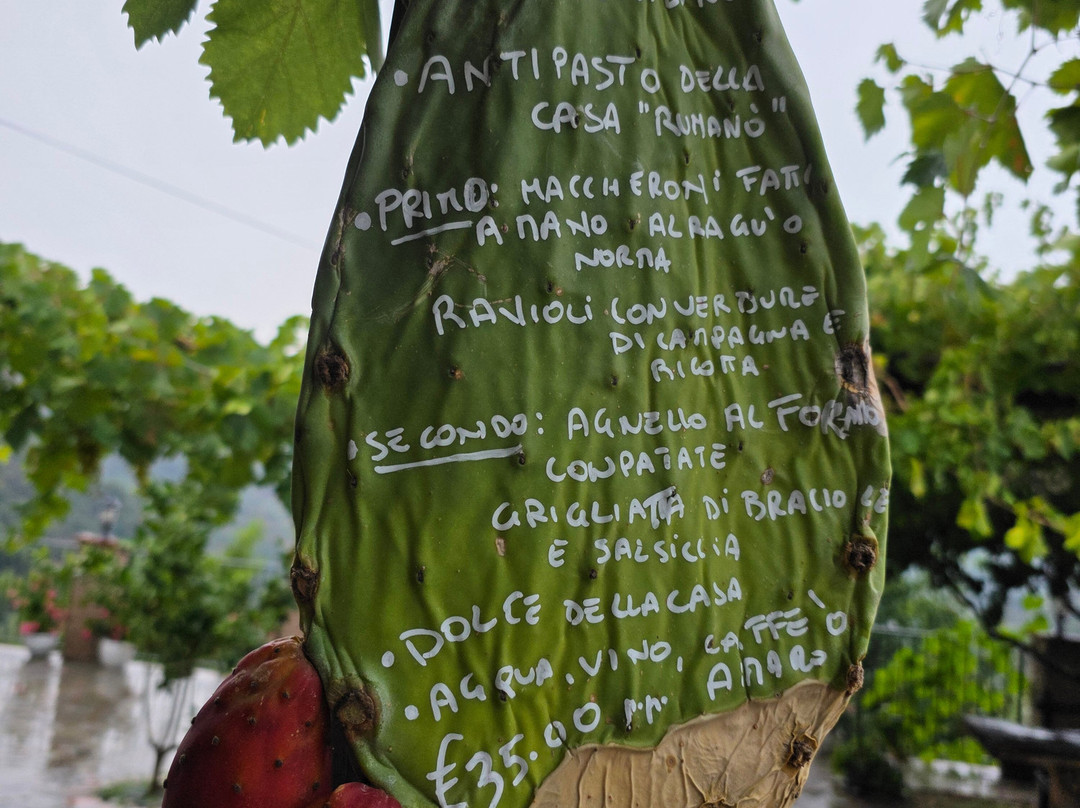 • ANTIPASTO DELLA
CASA "RUMANÒ"
• PRIMO: MACCHERONI FATTI
A MANO AL RAGU' O
NORMA
RAVIOLI CON VERDURE
DI CAMPAGNA E
RICOTTA
• SECONDO: AGNELLO AL FORNO
CON PATATE
GRIGLIATA DI BRACIOLE
E SALSICCIA
• DOLCE DELLA CASA
• ACQUA, VINO, CAFFE' O
AMARO
€35.00 P.P.